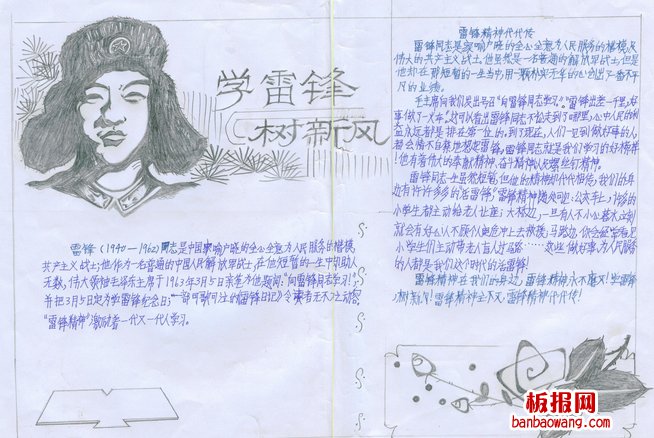 学雷锋
树新风
雷锋(1940—1962)同志是中国家喻户晓的全心全意为人民服务的楷模,
共产主义战士;他作为一名普通的中国人民解放军战士,在他短暂的一生中却助人
无数,伟大领袖毛泽东主席于1963年3月5日亲笔为他题词:"向雷锋同志学习",
并把3月5日定为学雷锋纪念日;一部可歌可泣的《雷锋日记》令读者无不为之动容。
"雷锋精神"激励着一代又一代人学习。
雷锋精神代代传
雷锋同志是家喻户晓的全心全意为人民服务的楷模,
伟大的共产主义战士,他虽然是一名普通的解放军战士,但是
他却在那短暂的一生当中,用一颗朴实无华的心创出了一番不平
凡的业绩。
毛主席向我们发出号召"向雷锋同志学习"。"雷锋出差一千里,好
事做了一火车。"这可以看出雷锋同志不论走到了哪里,心中人民的利
益永远都是排在第一位的,到了现在,人们一见到做好事的人
都会情不自禁地想起雷锋,雷锋同志就是我们学习的好榜样
!他有着伟大的奉献精神,奋斗精神以及螺丝钉精神。
雷锋同志一生虽然短暂,但他的精神却代代相传,我们的身
边有许许多多的活雷锋,"雷锋精神"随处可见:公交车上,许多的
小学生都主动给老人让座;大桥边,一旦有人不小心落水,立刻
就会有好心人不顾个人的危险上去救援;马路边,你会经常看见
小学生们主动带老人盲人过马路……这些做好事,为人民服务
的人都是我们这个时代的活雷锋!
雷锋精神在我们的身边,雷锋精神永不熄灭!学雷锋
,树新风!雷锋精神永不灭,雷锋精神代代传!
板报网
banbaowang.com